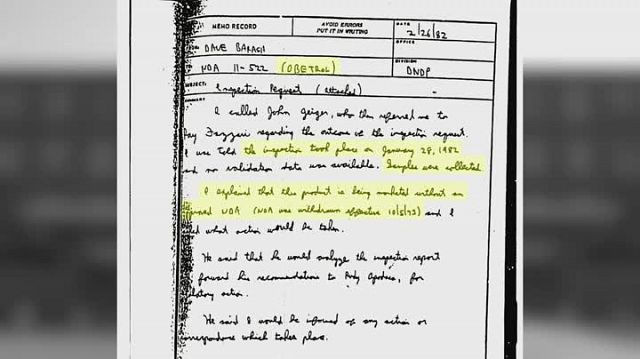 MEMO RECORD
AVOID ERRORS
PUT IT IN WRITING
DATE
2/26/82
OFFICE
DAVE BARASH
TO NDA 11-522 (OBETROL)
DIVISION
DNDP
SUBJECT:
Inspection Request (attached)
SUMMARY
I called John Geiger, who then referred me to
regarding the outcome of the inspection request.
I was told the inspection took place on January 28, 1982
and no validation data was available. Samples were collected.
I explained that this product is being marketed without an
NDA (NDA was withdrawn effective 10/5/73) and I
what action would be taken.
He said that he would analyze the inspection report
forward his recommendations to for
action.
He said I would be informed of any action or
correspondence which takes place.